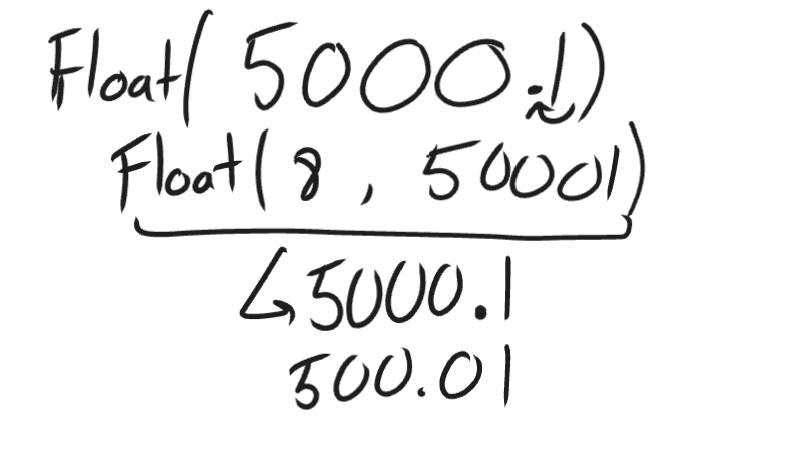 Float(5000.1)
Float(8, 50001)
↳5000.1
500.01